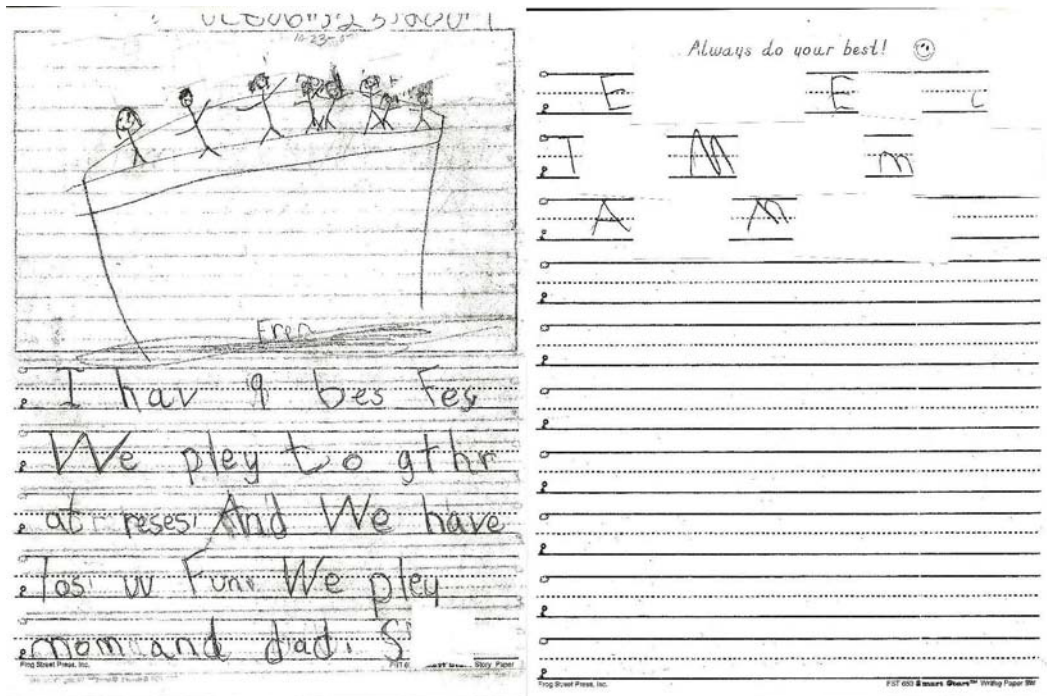 10-23-
Fren
I hav 9 bes Fes
We pley to gthr
at reses. And We have
los uv Fun. We pley
mom and dad. S
Frog Street Press, Inc.
Story Paper
Always do your best!
E E c
I M m
A M
Frog Street Press, Inc.
FST 653 Smart Start™ Writing Paper SW